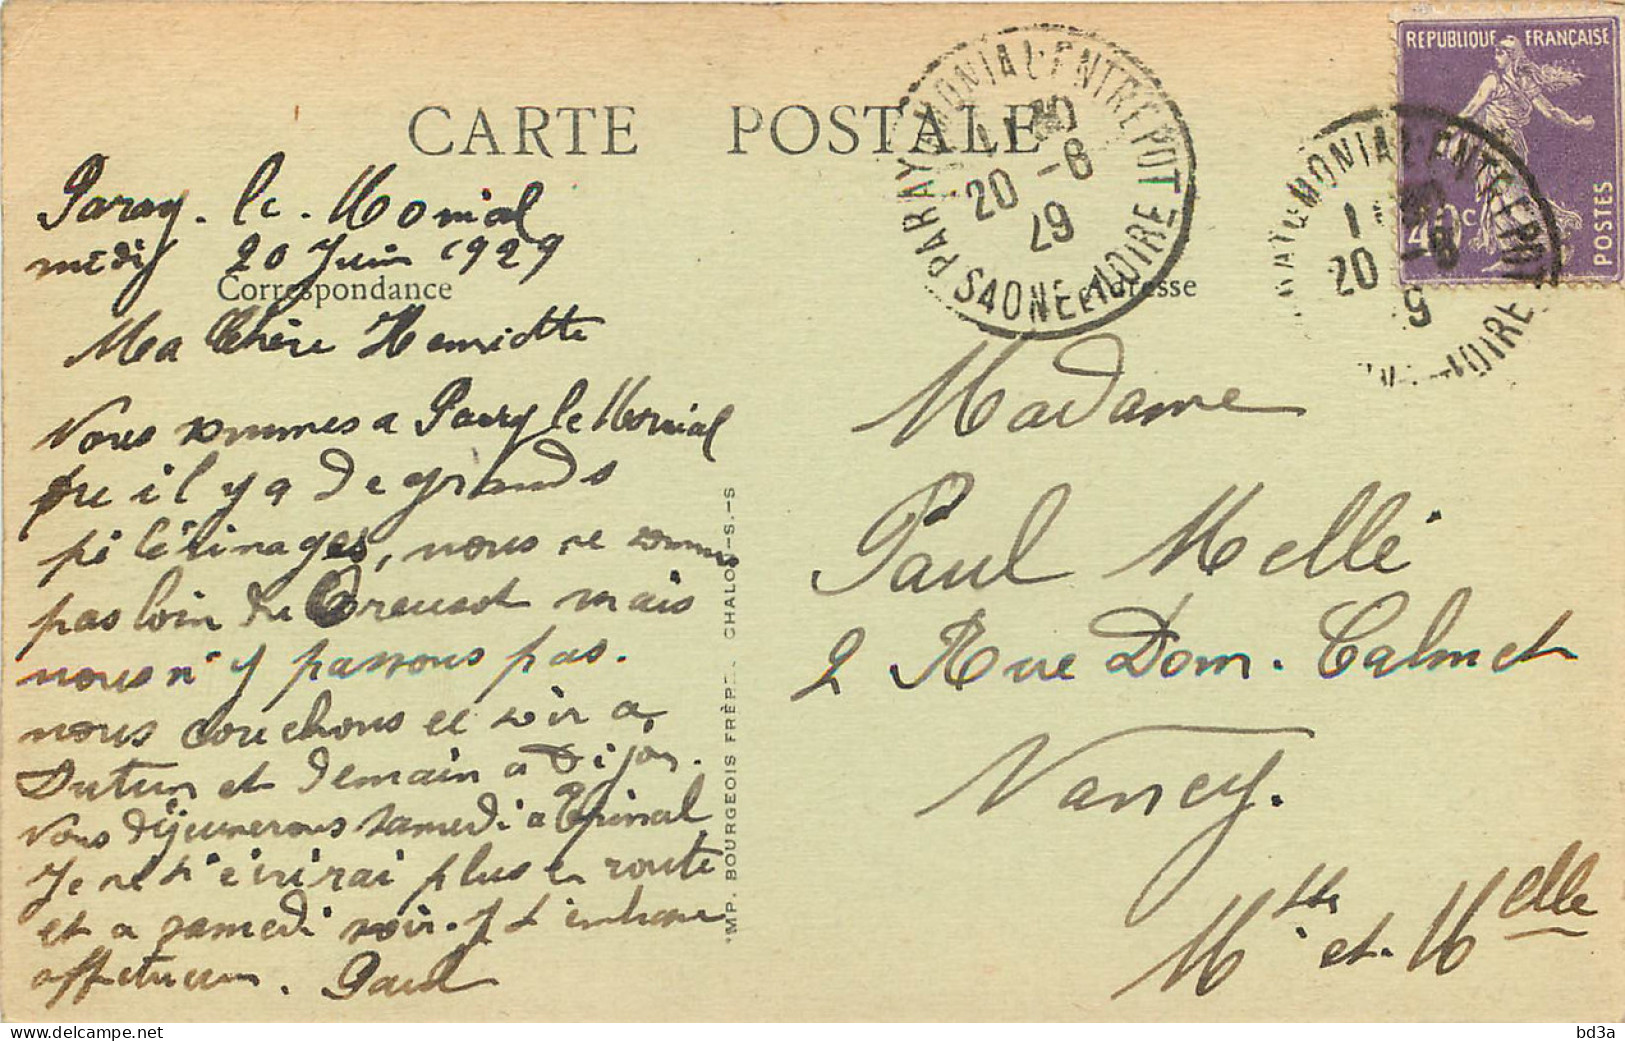 CARTE POSTALE
Paray-le-Monial
midi 20 Juin 1929
Correspondance
Adresse
Ma Chère Henriette
Nous sommes a Paray le Monial
où il y a de grands
pélérinages, nous ne sommes
pas loin du Creusot mais
nous n'y passons pas.
nous couchons ce soir a
Autun et demain a Dijon.
Nous déjeunerons samedi a Epinal
Je ne t'écrirai plus en route
et a samedi soir. Je t'embrasse
affectueu. Paul
IMP. BOURGEOIS FRÈR. CHALON-S.-S
Madame
Paul Mellé
2 Rue Dom. Calmet
Nancy.
Mthe et Melle
PARAY-LE-MONIAL-ENTREPOT
20 -6
29
SAONE-ET-LOIRE
REPUBLIQUE FRANÇAISE
40c
POSTES
MONIAL-ENTREPOT
20 -6
9
LOIRE
bd3a